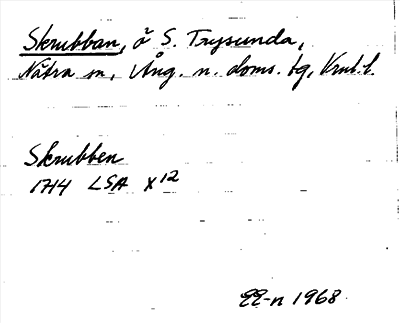 Skrubban, ö S. Trysunda,
Nätra sn, Ång. n. doms. tg, Vnl. l.
Skrubben
1714 LSA X12
EE-n 1968